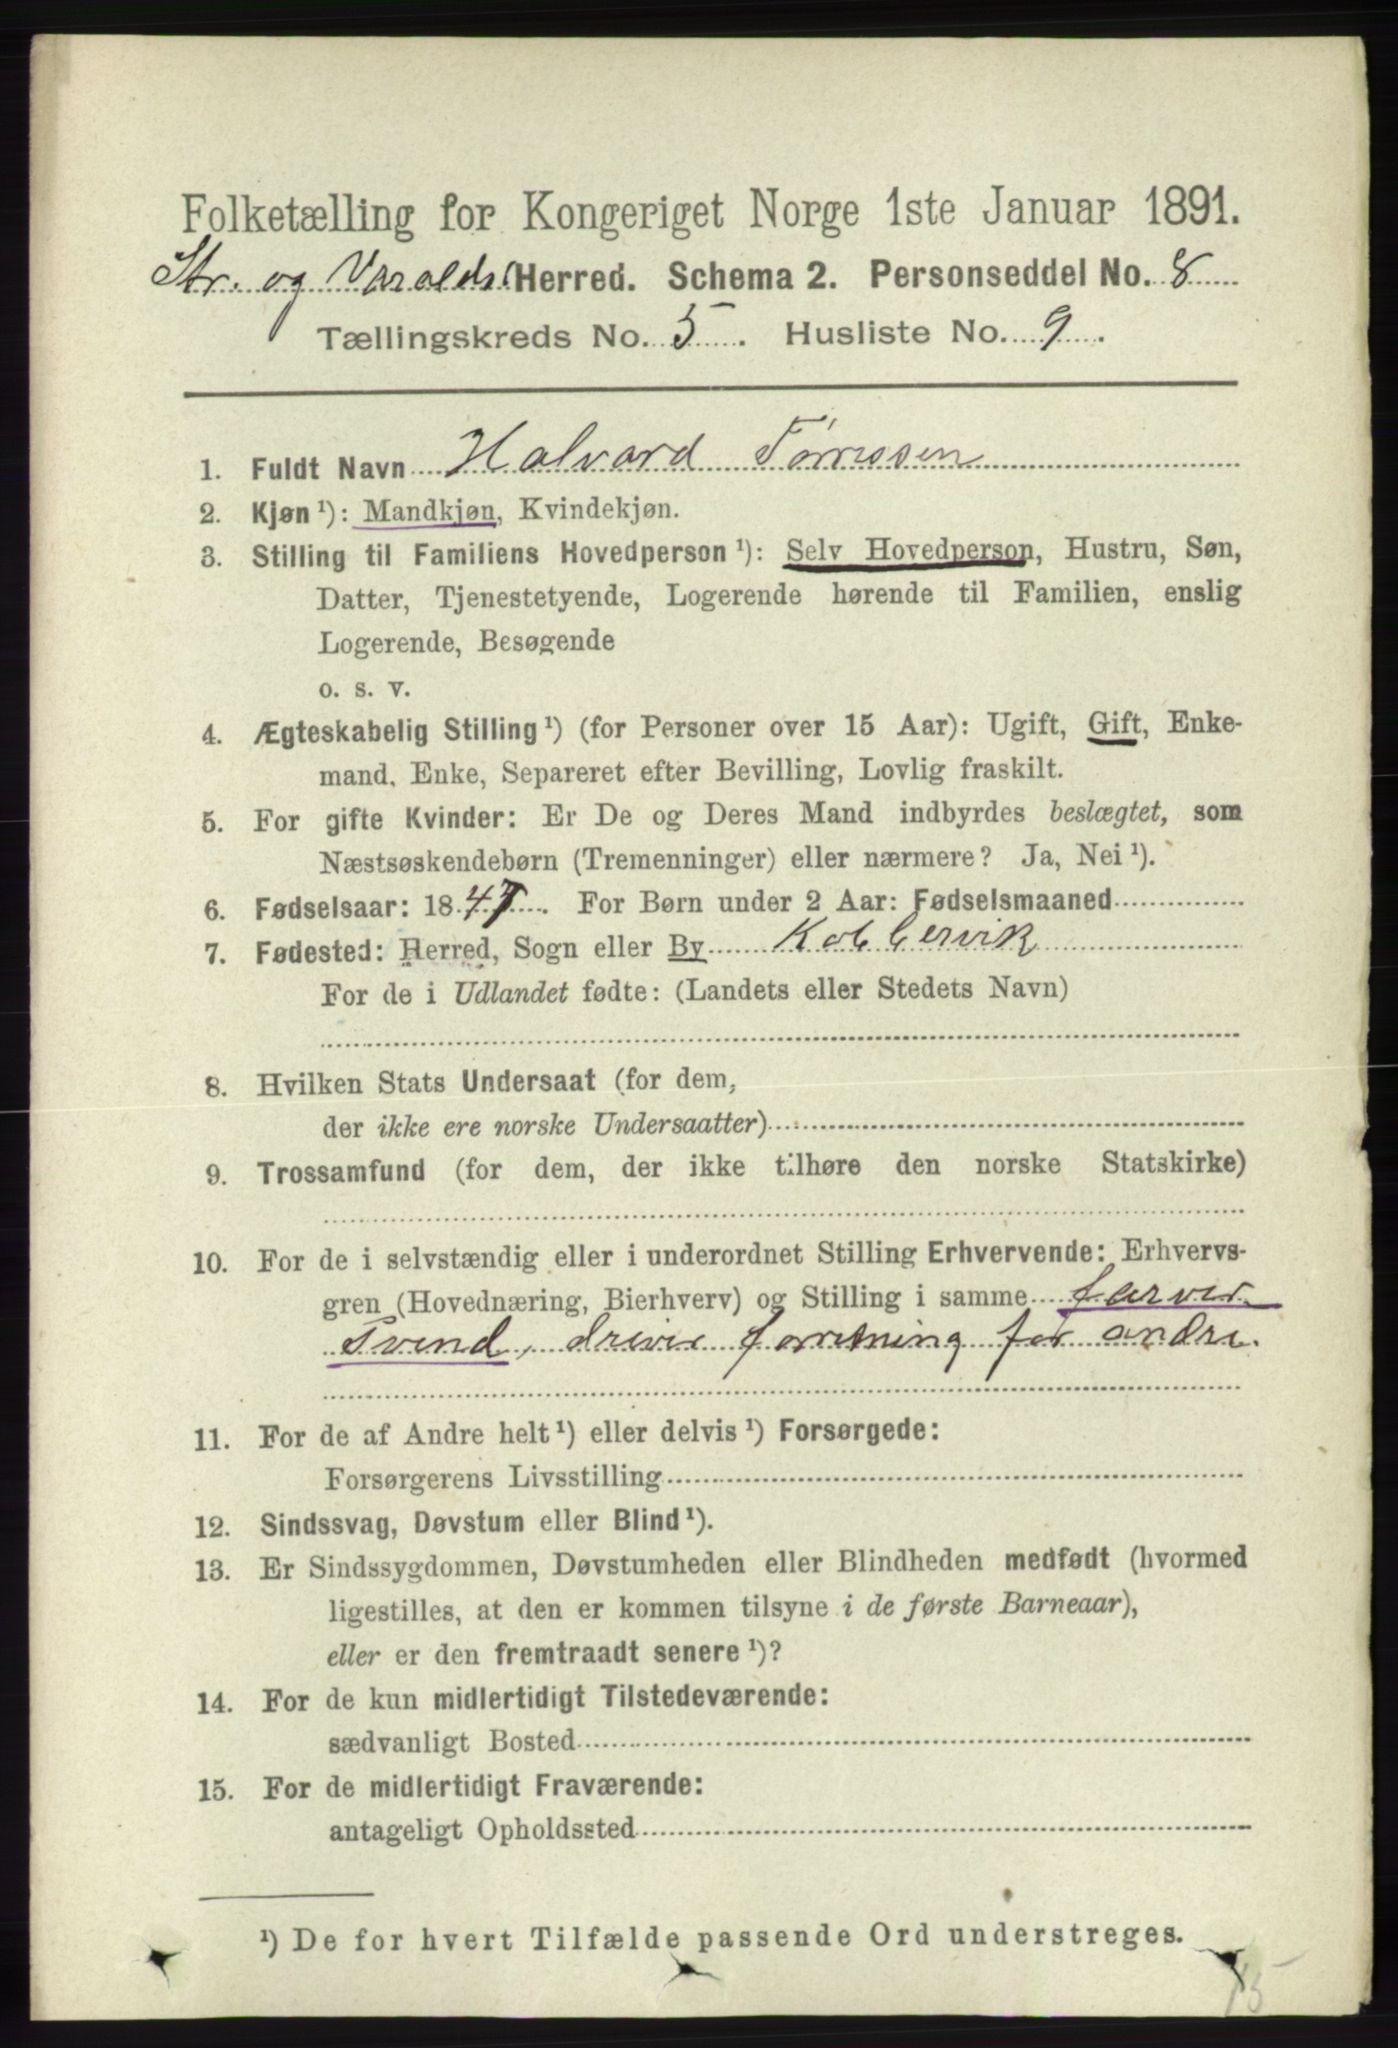 Folketælling for Kongeriget Norge 1ste Januar 1891.
Str. og Varalds Herred. Schema 2. Personseddel No. 8
Tællingskreds No. 5. Husliste No. 9.
1. Fuldt Navn Halvard Tørressen
2. Kjøn ¹): Mandkjøn, Kvindekjøn.
3. Stilling til Familiens Hovedperson ¹): Selv Hovedperson, Hustru, Søn,
Datter, Tjenestetyende, Logerende hørende til Familien, enslig
Logerende, Besøgende
o. s. v.
4. Ægteskabelig Stilling ¹) (for Personer over 15 Aar): Ugift, Gift, Enke-
mand, Enke, Separeret efter Bevilling, Lovlig fraskilt.
5. For gifte Kvinder: Er De og Deres Mand indbyrdes beslægtet, som
Næstsøskendebørn (Tremenninger) eller nærmere? Ja, Nei ¹).
6. Fødselsaar: 1847. For Børn under 2 Aar: Fødselsmaaned
7. Fødested: Herred, Sogn eller By Kobbervik
For de i Udlandet fødte: (Landets eller Stedets Navn)
8. Hvilken Stats Undersaat (for dem,
der ikke ere norske Undersaatter)
9. Trossamfund (for dem, der ikke tilhøre den norske Statskirke)
10. For de i selvstændig eller i underordnet Stilling Erhvervende: Erhvervs-
gren (Hovednæring, Bierhverv) og Stilling i samme farver
Svend, driver forretning for andre.
11. For de af Andre helt ¹) eller delvis ¹) Forsørgede:
Forsørgerens Livsstilling
12. Sindssvag, Døvstum eller Blind ¹).
13. Er Sindssygdommen, Døvstumheden eller Blindheden medfødt (hvormed
ligestilles, at den er kommen tilsyne i de første Barneaar),
eller er den fremtraadt senere ¹)?
14. For de kun midlertidigt Tilstedeværende:
sædvanligt Bosted
15. For de midlertidigt Fraværende:
antageligt Opholdssted
¹) De for hvert Tilfælde passende Ord understreges.
15